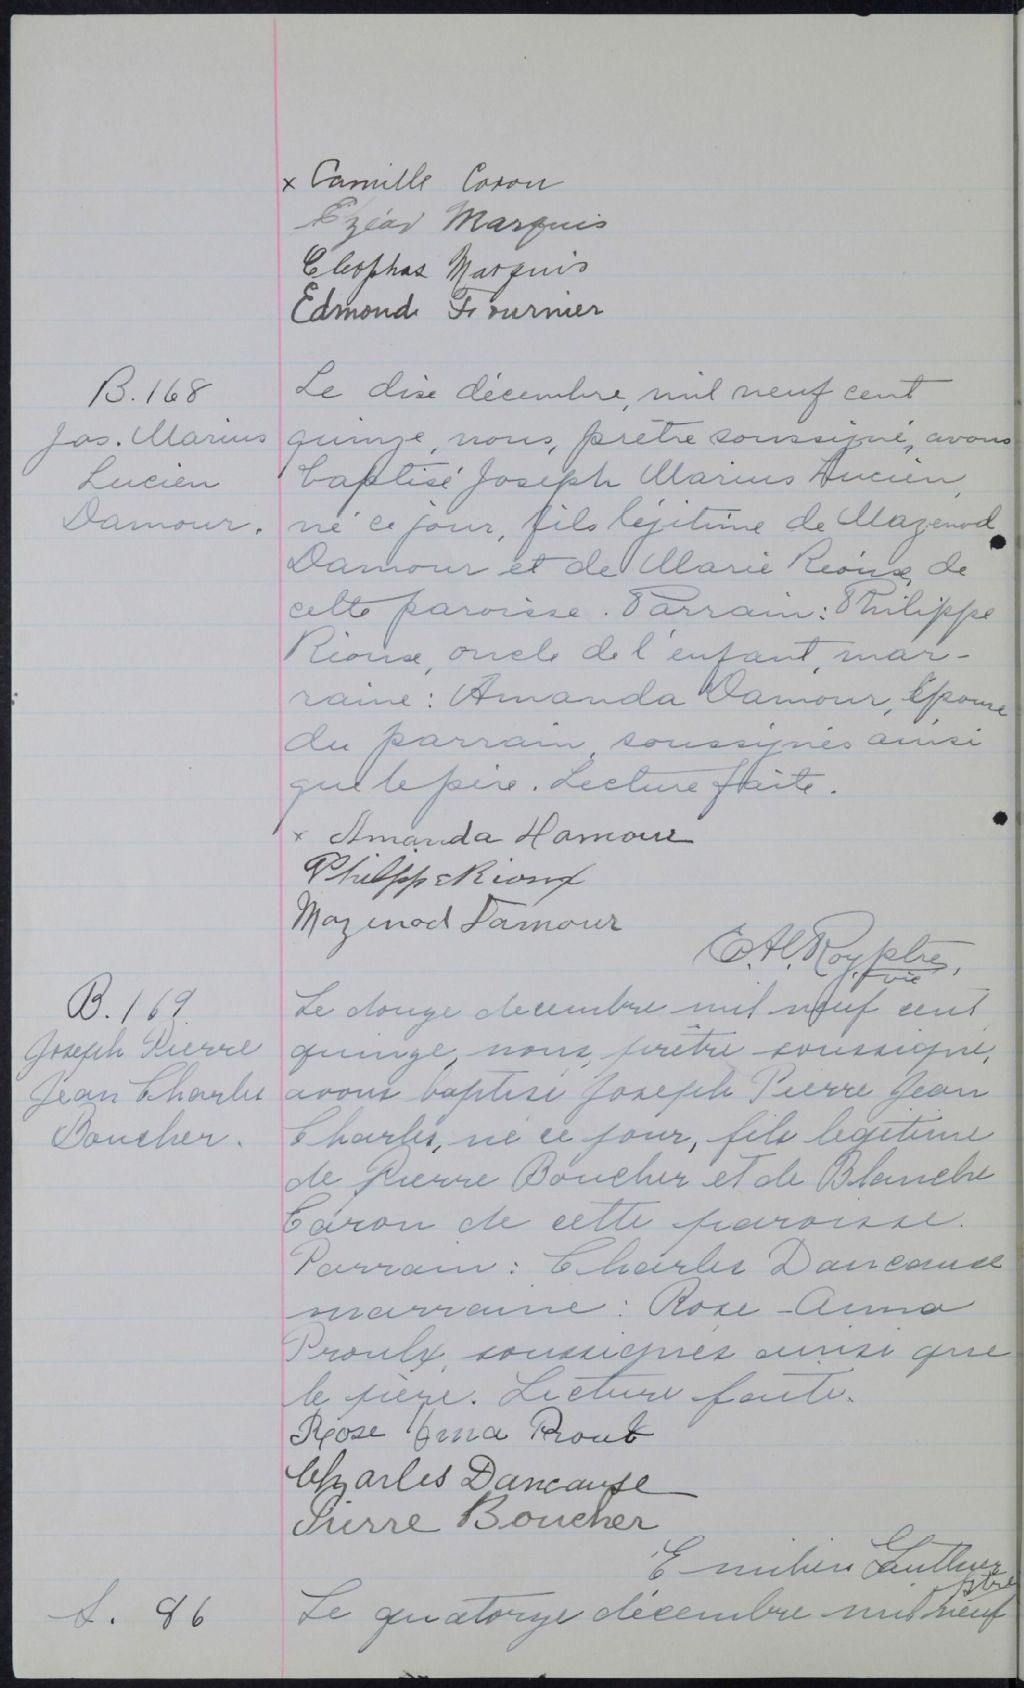 x Camille Caron
Elzéar Marquis
Cleophas Marquis
Edmond Fournier
B. 168
Jos. Marius
Lucien
Damour.
Le dix décembre, mil neuf cent
quinze, nous, prêtre soussigné, avons
baptisé Joseph Marius Lucien,
né ce jour, fils légitime de Mazenod
Damour et de Marie Rioux, de
cette paroisse. Parrain: Philippe
Rioux, oncle de l'enfant, mar-
raine: Amanda Damour, épouse
du parrain, soussignés ainsi
que le père. Lecture faite.
x Amanda Damour
Philippe Rioux
Mazenod Damour
Roy, ptre,
vic
B. 169
Joseph Pierre
Jean Charles
Boucher.
Le douze decembre mil neuf cent
quinze, nous, prêtre soussigné,
avons baptisé Joseph Pierre Jean
Charles, né ce jour, fils legitime
de Pierre Boucher et de Blanche
Caron de cette paroisse.
Parrain: Charles Dancause
marraine: Rose-Anna
Proulx, soussignés ainsi que
le père. Lecture faite.
Rose Proulx
Charles Dancause
Pierre Boucher
Emilien Gauthier
ptre
S. 86
Le quatorze décembre mil neuf